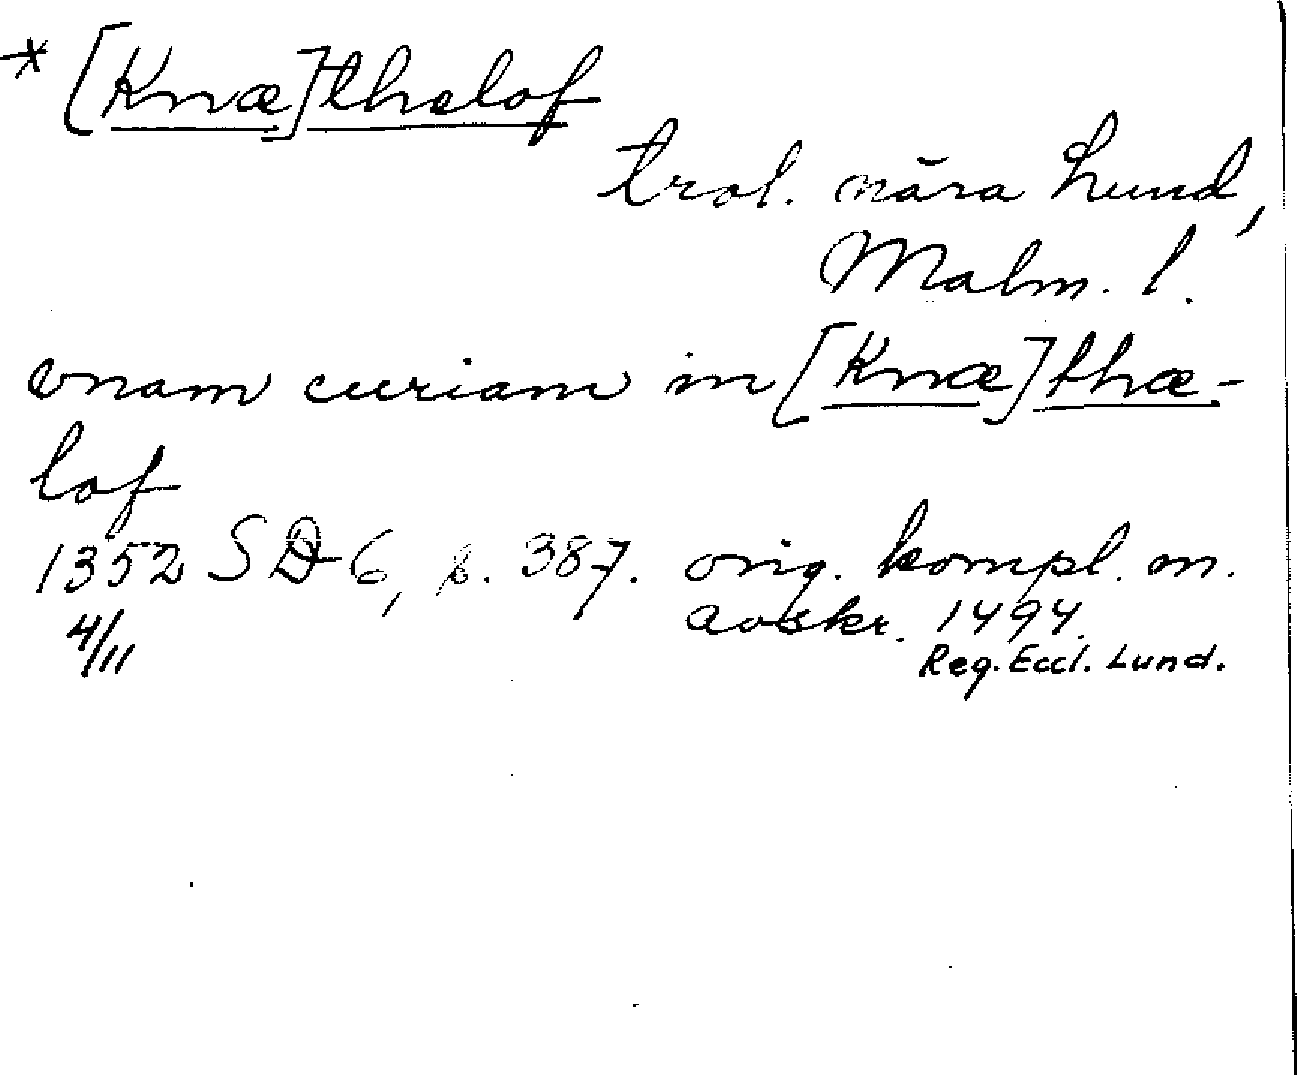 * [Knæ]thelof
trol. nära Lund,
Malm. l.
vnam curiam in [Knæ]thæ-
lof
1352 SD 6, s. 387. orig. kompl. m.
4/11 avskr. 1494
Reg. Eccl. Lund.